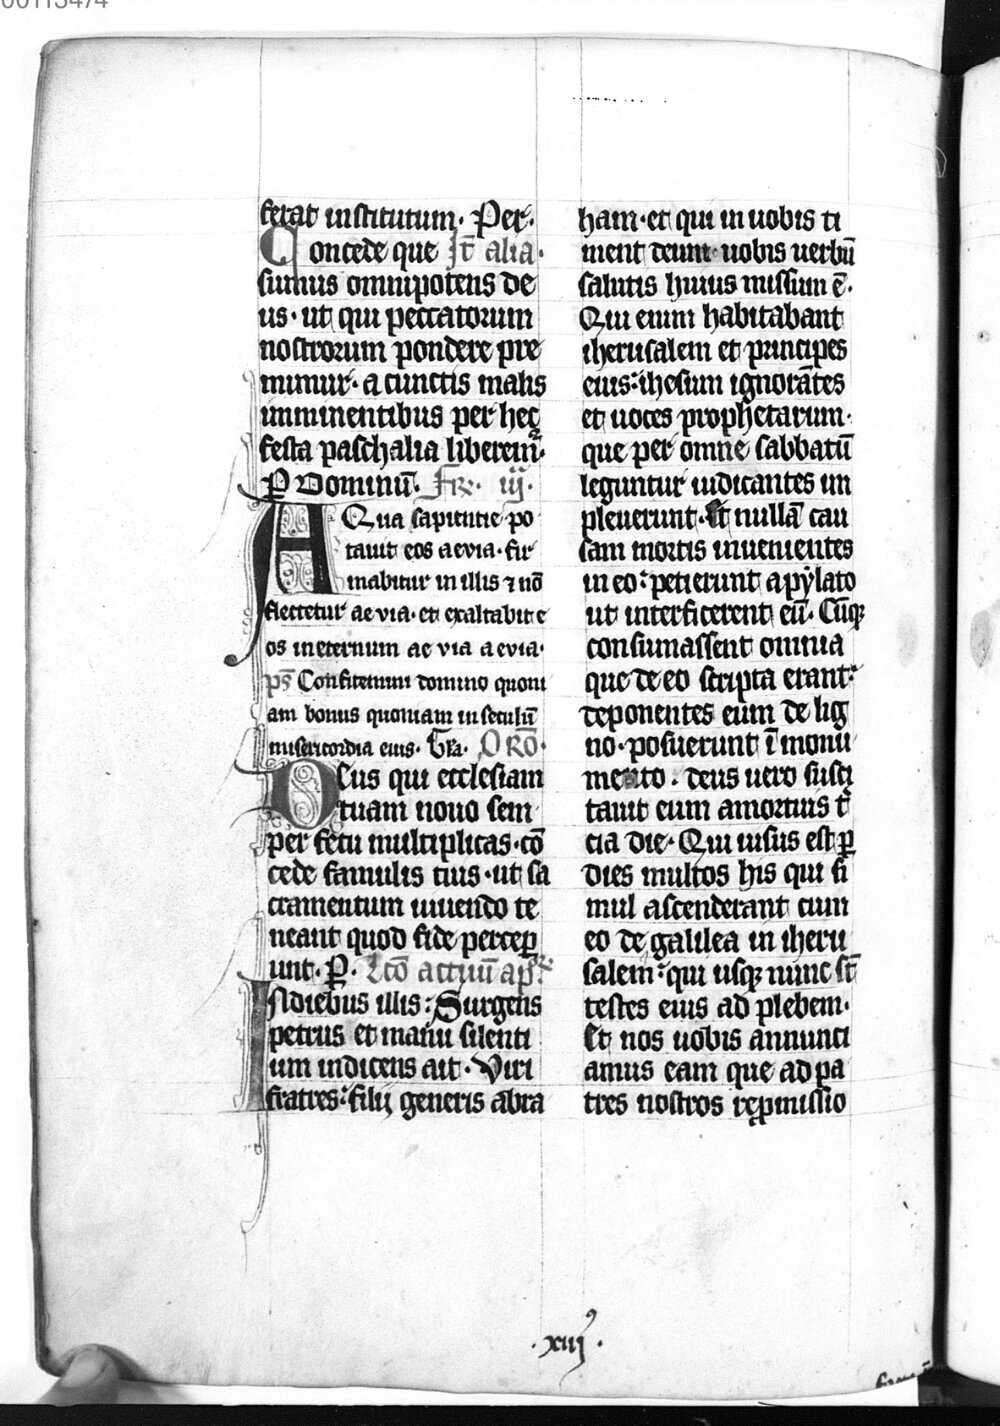 00113474
ferat institutum. Per.
Concede que Jt̄ alia.
sumus omnipotens de
us. ut qui peccatorum
nostrorum pondere pre
mimur. a cunctis malis
imminentibus per hec
festa paschalia liberemꝰ.
P̲ Dominū. Fr. iij.
AQua sapientie po
tauit eos aeuia. fir
mabitur in illis ⁊ nō
flectetur aeuia. et exaltabit e
os in eternum ae uia aeuia.
ps̄ Confitemini domino quoni
am bonus quoniam in seculū
misericordia eius. Gła. ORō.
DEus qui ecclesiam
tuam nouo sem
per fetu multiplicas. cō
cede famulis tuis. ut sa
cramentum uiuendo te
neant quod fide percep
unt. P̲. Lcō actuū apꝉ.
IN diebus illis: Surgens
petrus et manu silenti
um indicens ait. Viri
fratres: filij generis abra
ham. et qui in uobis ti
ment deum. uobis uerbū
salutis huius missum ē.
Qui enim habitabant
iherusalem et principes
eius: ihesum ignorātes
et uoces prophetarum.
que per omne sabbatū
leguntur iudicantes im
pleuerunt. Et nullā cau
sam mortis inuenientes
in eo: petierunt a pylato
ut interficerent eū. Cūqꝫ
consumassent omnia
que de eo scripta erant:
deponentes eum de lig
no. posuerunt ī monu
mento. deus uero susci
tauit eum a mortuis t̄
cia die. Qui uisus est ꝑ
dies multos his qui si
mul ascenderant cum
eo de galilea in iheru
salem: qui usqꝫ nunc st̄
testes eius ad plebem.
Et nos uobis annunci
amus eam que ad pa
tres nostros reꝓmissio
. xiijꝰ .